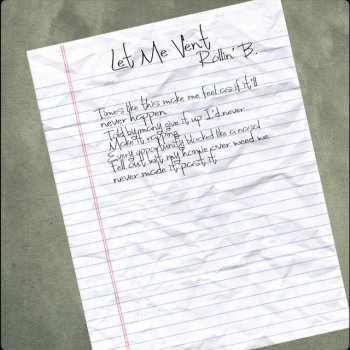 Let Me Vent
Rollin' B.
Times like this make me feel as if it'll
never happen
Told by many give it up I'd never
Make it rapping
Every opportunity blocked like a nasal
Fell out wit my homie over weed we
never made it past it